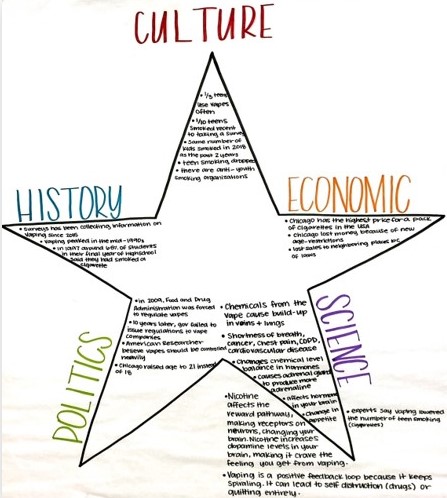 CULTURE
• 1/3 teens
use vapes
often
• 1/10 teens
smoked recent
to taking a survey
• Same number of
kids smoked in 2018
as the past 2 years
• teen smoking dropped
• there are anti-youth
smoking organizations
HISTORY
• Surveys has been collecting information on
vaping since 2011
• Vaping peaked in the mid-1990s
• in 1997 around of students
in their final year of highschool
said they had smoked a
cigarette
ECONOMIC
• Chicago has the highest price for a pack
of cigarettes in the USA
• Chicago lost money because of new
age-restrictions
• lost sales to neighboring places
of
POLITICS
• in 2009, Food and Drug
Administration was forced
to regulate vapes
• 10 years later, gov failed to
issue regulations to vape
companies
• American Researcher
believe vapes should be controlled
heavily
• Chicago raised age to 21 instead
of 18
SCIENCE
Chemicals from the
vape cause build-up
in veins + lungs
• Shortness of breath,
cancer, Chest pain, COPD,
cardiovascular disease
• Changes chemical level
balance in hormones
• causes adrenal gland
to produce more
adrenaline
• affects hormones
in your brain
• change in
appetite
• Nicotine
affects the
reward pathway,
making receptors on
neurons, changing your
brain. Nicotine increases
dopamine levels in your
brain, making it crave the
feeling you get from vaping.
• Vaping is a positive feedback loop because it keeps
spiraling. It can lead to self distruction (drugs) or
quitting entirely.
• experts say vaping lowered
the number of teen smoking
(cigarettes)